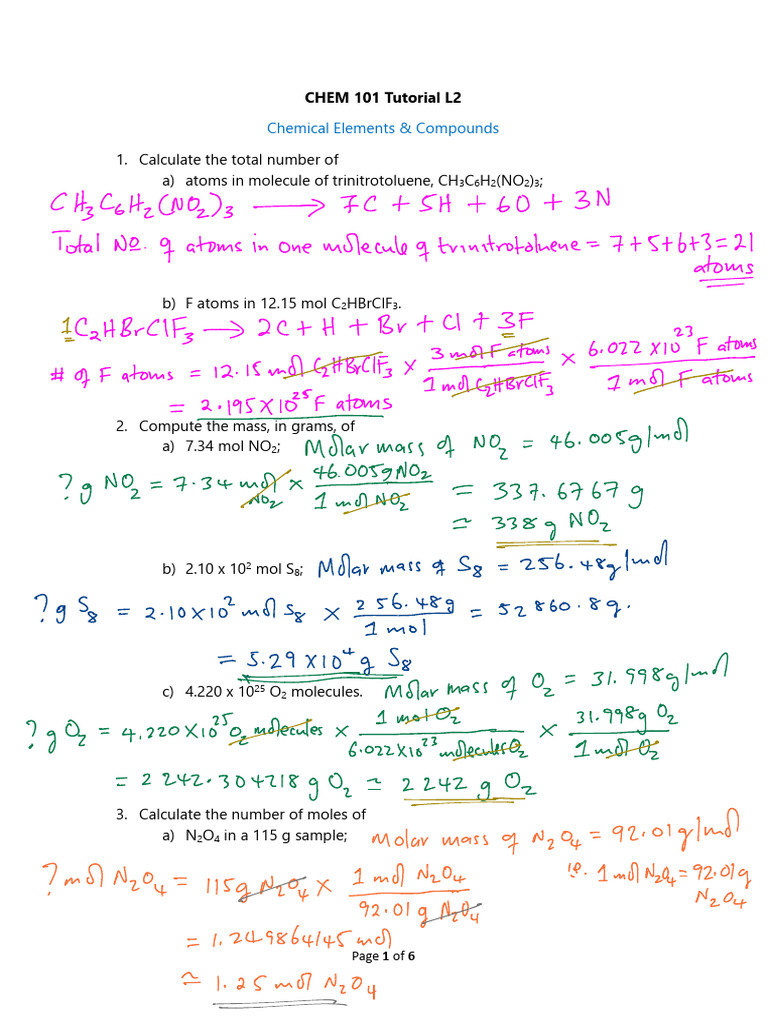 CHEM 101 Tutorial L2
Chemical Elements & Compounds
1. Calculate the total number of
a) atoms in molecule of trinitrotoluene, CH₃C₆H₂(NO₂)₃;
CH₃C₆H₂(NO₂)₃ ⟶ 7C + 5H + 6O + 3N
Total No. of atoms in one molecule of trinitrotoluene = 7+5+6+3 = 21
atoms
b) F atoms in 12.15 mol C₂HBrClF₃.
1C₂HBrClF₃ ⟶ 2C + H + Br + Cl + 3F
# of F atoms = 12.15 mol C₂HBrClF₃ × 3 mol F atoms / 1 mol C₂HBrClF₃ × 6.022 X10²³ F atoms / 1 mol F atoms
= 2.195 X10²⁵ F atoms
2. Compute the mass, in grams, of
a) 7.34 mol NO₂; Molar mass of NO₂ = 46.005g/mol
? g NO₂ = 7.34 mol NO₂ × 46.005g NO₂ / 1 mol NO₂ = 337.6767 g
≃ 338 g NO₂
b) 2.10 x 10² mol S₈; Molar mass of S₈ = 256.48g/mol
? g S₈ = 2.10X10² mol S₈ × 256.48g / 1 mol = 52860.8g.
= 5.29 X10⁴ g S₈
c) 4.220 x 10²⁵ O₂ molecules. Molar mass of O₂ = 31.998g/mol
? g O₂ = 4.220 X10²⁵ O₂ molecules × 1 mol O₂ / 6.022X10²³ molecules O₂ × 31.998g O₂ / 1 mol O₂
= 2242.304218 g O₂ ≃ 2242 g O₂
3. Calculate the number of moles of
a) N₂O₄ in a 115 g sample; Molar mass of N₂O₄ = 92.01g/mol
? mol N₂O₄ = 115g N₂O₄ × 1 mol N₂O₄ / 92.01 g N₂O₄ ie. 1 mol N₂O₄ = 92.01g
N₂O₄
= 1.249864145 mol
Page 1 of 6
≃ 1.25 mol N₂O₄